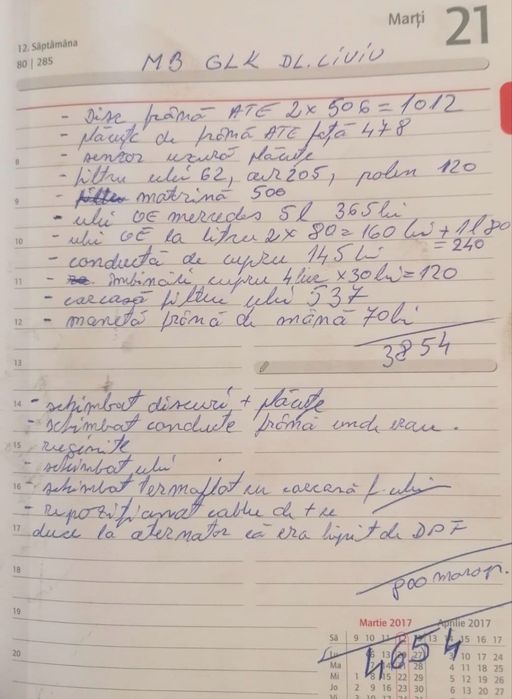 12. Săptămâna
80 | 285
Marți 21
MB GLK DL. LIVIU
- Disc frână ATE 2 x 506 = 1012
- plăcuțe de frână ATE față 478
- senzor uzură plăcuțe
- filtru ulei 62, aer 205, polen 120
- matrină 500
- ulei OE mercedes 5l 365 lei
- ulei OE la litru 2x 80 = 160 lei + 1l 80
= 240
- conductă de cupru 145 lei
- îmbinări cupru 4 buc x 30 lei = 120
- carcasă filtru ulei 537
- manetă frână de mână 70 lei
3854
- schimbat discuri + plăcuțe
- schimbat conducte frână unde erau
ruginite
- schimbat ulei
- schimbat termoflot cu carcasă f. ulei
- repoziționat cablu de + ce
duce la alternator că era lipit de DPF
800 manop.
4654
8
9
10
11
12
13
14
15
16
17
18
19
20
Martie 2017
Aprilie 2017